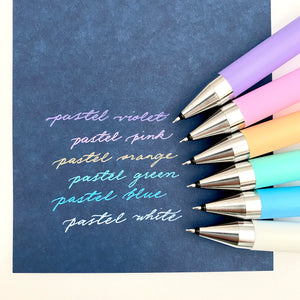 pastel violet
pastel pink
pastel orange
pastel green
pastel blue
pastel white